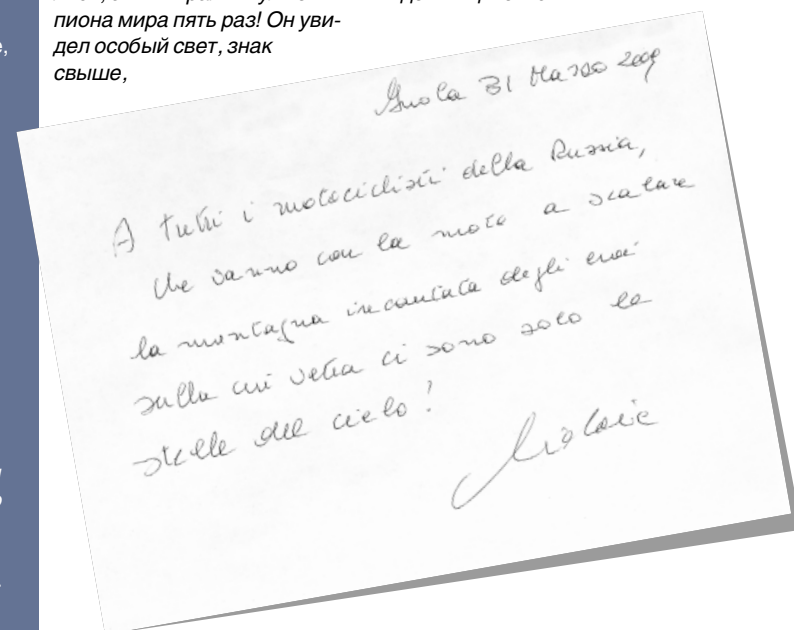 пиона мира пять раз! Он уви-
дел особый свет, знак
свыше,
Imola 31 Marzo 2009
A tutti i motociclisti della Russia,
che vanno con la moto a scalare
la montagna incantata degli eroi
sulla cui vetta ci sono solo le
stelle del cielo!